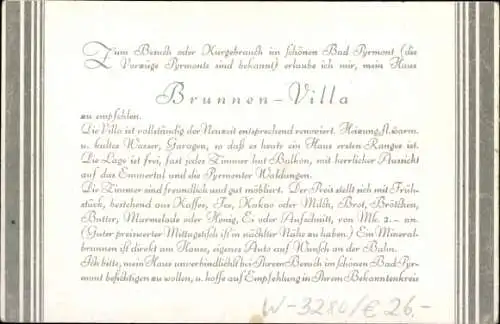 Zum Besuch oder Kurgebrauch im schönen Bad Pyrmont (die
Vorzüge Pyrmonts sind bekannt) erlaube ich mir, mein Haus
Brunnen-Villa
zu empfehlen.
Die Villa ist vollständig der Neuzeit entsprechend renoviert. Heizung, fl. warm.
u. kaltes Wasser, Garagen, so daß es heute ein Haus ersten Ranges ist.
Die Lage ist frei, fast jedes Zimmer hat Balkon, mit herrlicher Aussicht
auf das Emmertal und die Pyrmonter Waldungen.
Die Zimmer sind freundlich und gut möbliert. Der Preis stellt sich mit Früh-
stück, bestehend aus Kaffee, Tee, Kakao oder Milch, Brot, Brötchen,
Butter, Marmelade oder Honig, Ei oder Aufschnitt, von Mk. 2.- an.
(Guter preiswerter Mittagstisch ist in nächster Nähe zu haben.) Ein Mineral-
brunnen ist direkt am Hause, eigenes Auto auf Wunsch an der Bahn.
Ich bitte, mein Haus unverbindlichst bei Ihrem Besuch im schönen Bad Pyr-
mont besichtigen zu wollen, u. hoffe auf Empfehlung in Ihrem Bekanntenkreis
W-3280/€ 26.-